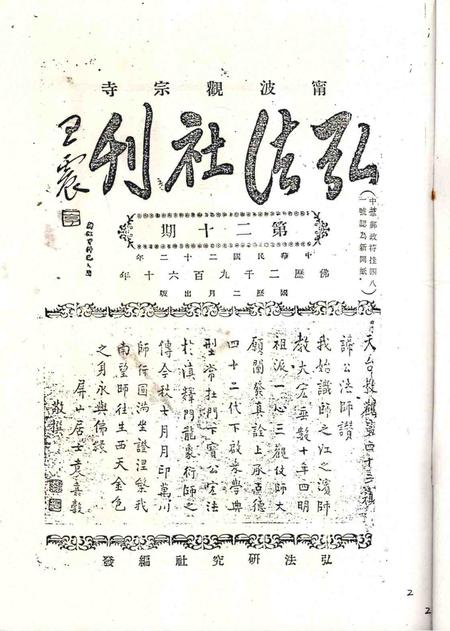 甯波觀宗寺
弘法社刊
王震
第二十期
中華民國二十二年
佛歷二千九百六十年
國歷二月出版
中華郵政特挂四八
一號認為新聞紙
天台教觀第四十三祖
諦公法師讚
我始識師之江之濱師
教大宏垂數十年四明
祖派一心三觀仗師大
願闡發真詮上承百德
四十二代下啟來學典
型常在門下寶公宏法
於滇輝門龍象衍師之
傳今秋七月月印萬川
師行圓滿坐證涅槃我
南望師往生西天金色
之身永與佛緣
屏山居士袁嘉穀
敬撰
弘法研究社編發
2
2